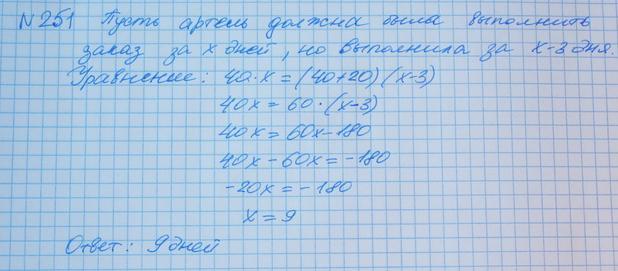 №251 Пусть артель должна была выполнить
заказ за x дней, но выполнила за x-3 дня.
Уравнение: 40·x=(40+20)(x-3)
40x=60·(x-3)
40x=60x-180
40x-60x=-180
-20x=-180
x=9
Ответ: 9 дней